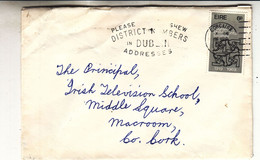 PLEASE SHEW
DISTRICT NUMBERS
IN DUBLIN
ADDRESSES
EIRE
The Principal,
Irish Television School,
Middle Square,
Macroom,
Co. Cork.